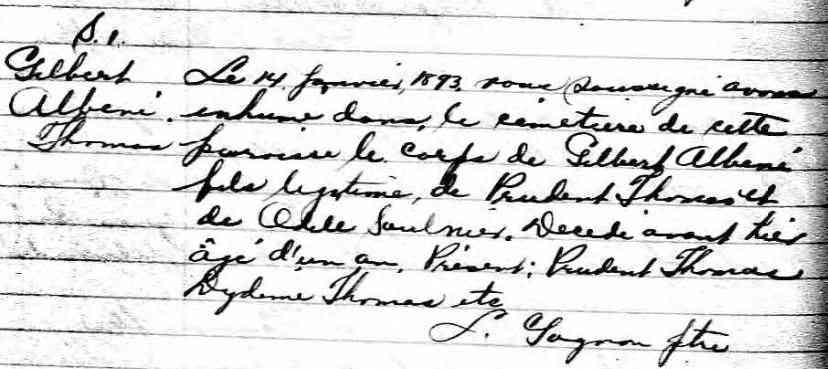 S. 1.
Gilbert
Albené
Thomas
Le 14 janvier, 1893, nous soussigné avons
inhumé dans le cémetière de cette
paroisse le corps de Gilbert Albené
fils legitime, de Prudent Thomas et
de Odele Saulnier. Decedé avant hier
âgé d'un an. Présent; Prudent Thomas
Dydeme Thomas etc
L. Gagnon ptre